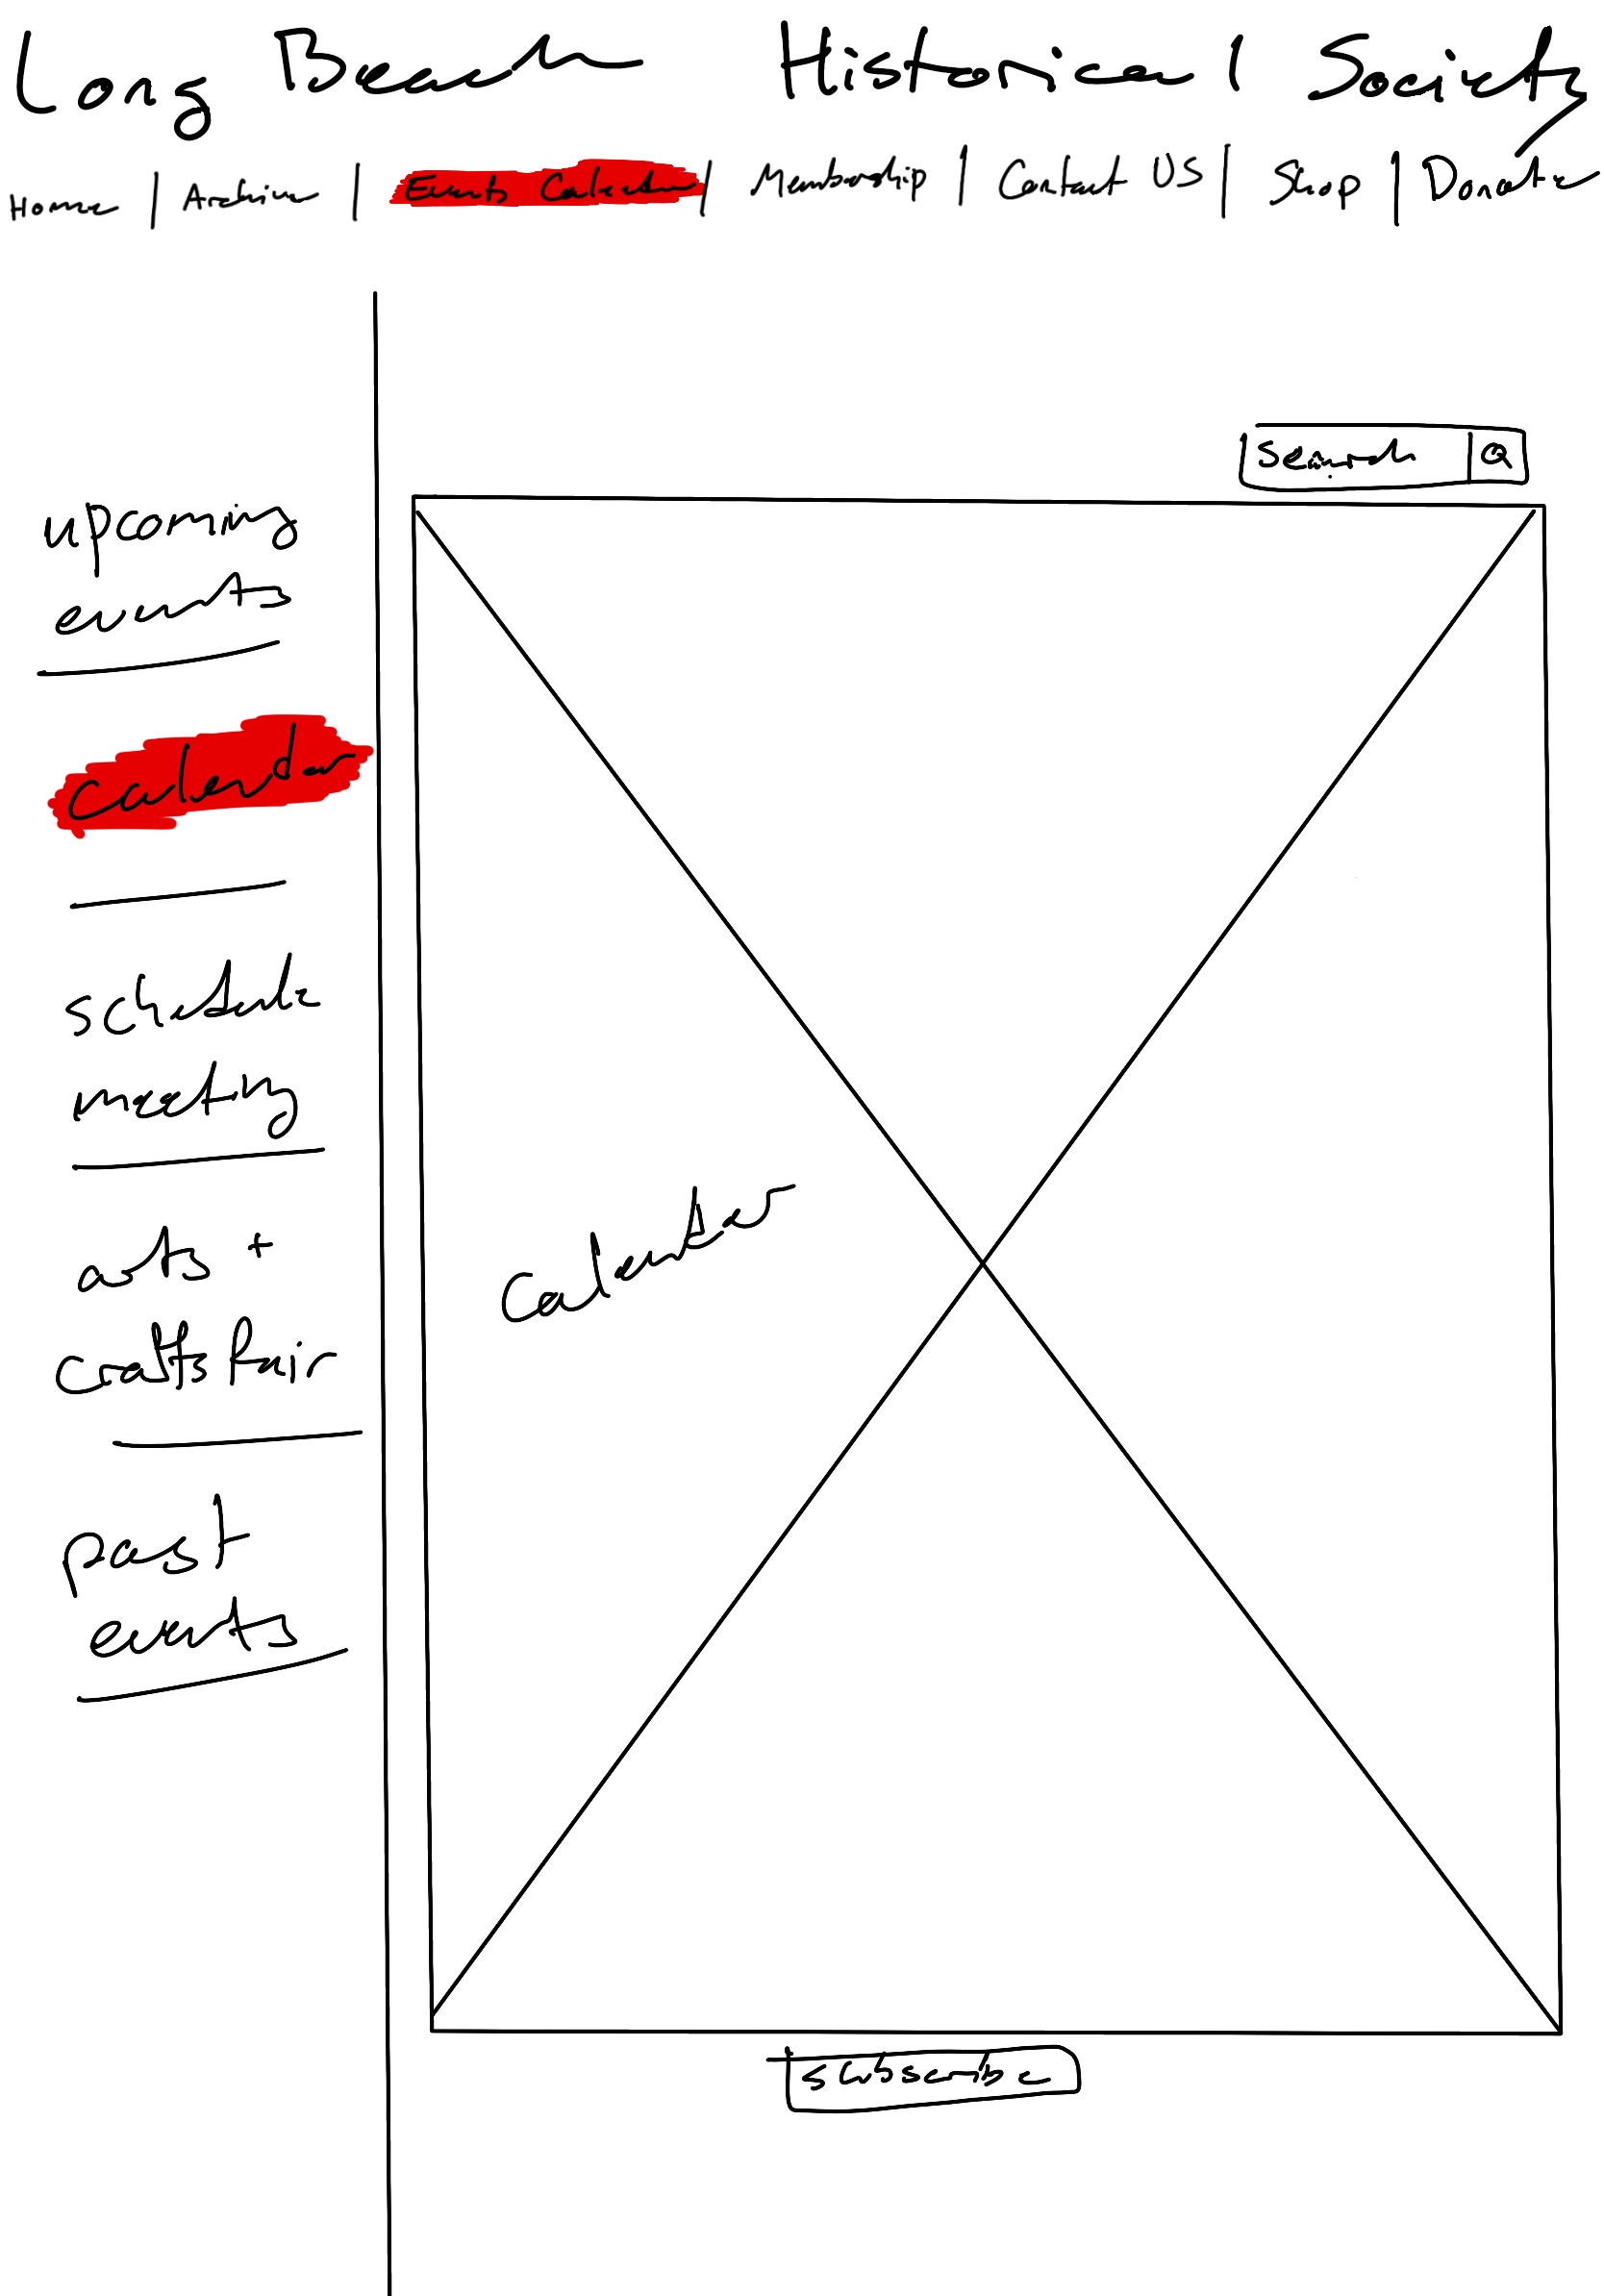 Long Beach Historical Society
Home | Archive | Events Calendar | Membership | Contact US | Shop | Donate
search
upcoming
events
calendar
schedule
meeting
arts +
crafts fair
past
events
Calendar
subscribe